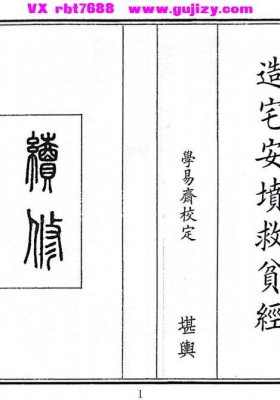 VX rbt7688 www.gujizy.com
造宅安墳救貧經
學易齋校定 堪輿
續修
1